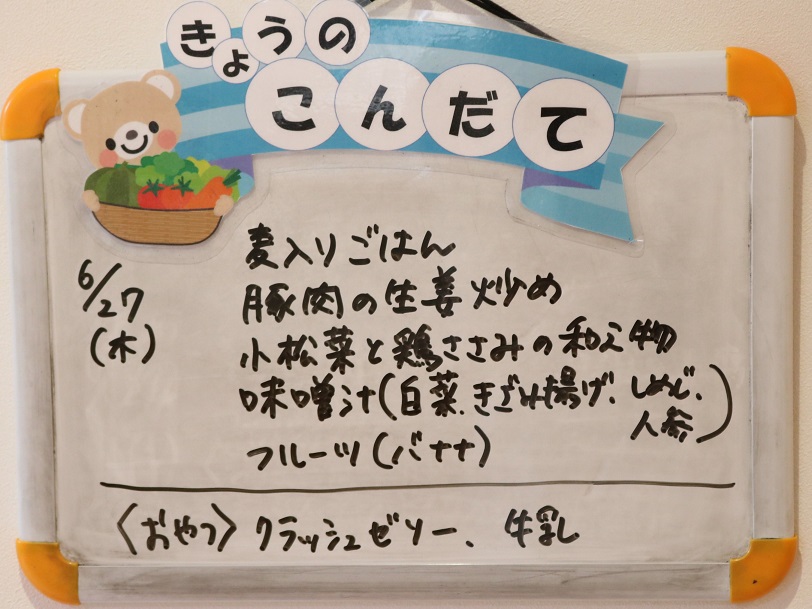 きょうの
こんだて
6/27
(木)
麦入りごはん
豚肉の生姜炒め
小松菜と鶏ささみの和え物
味噌汁(白菜、きざみ揚げ、しめじ、
人参)
フルーツ(バナナ)
〈おやつ〉クラッシュゼリー、牛乳